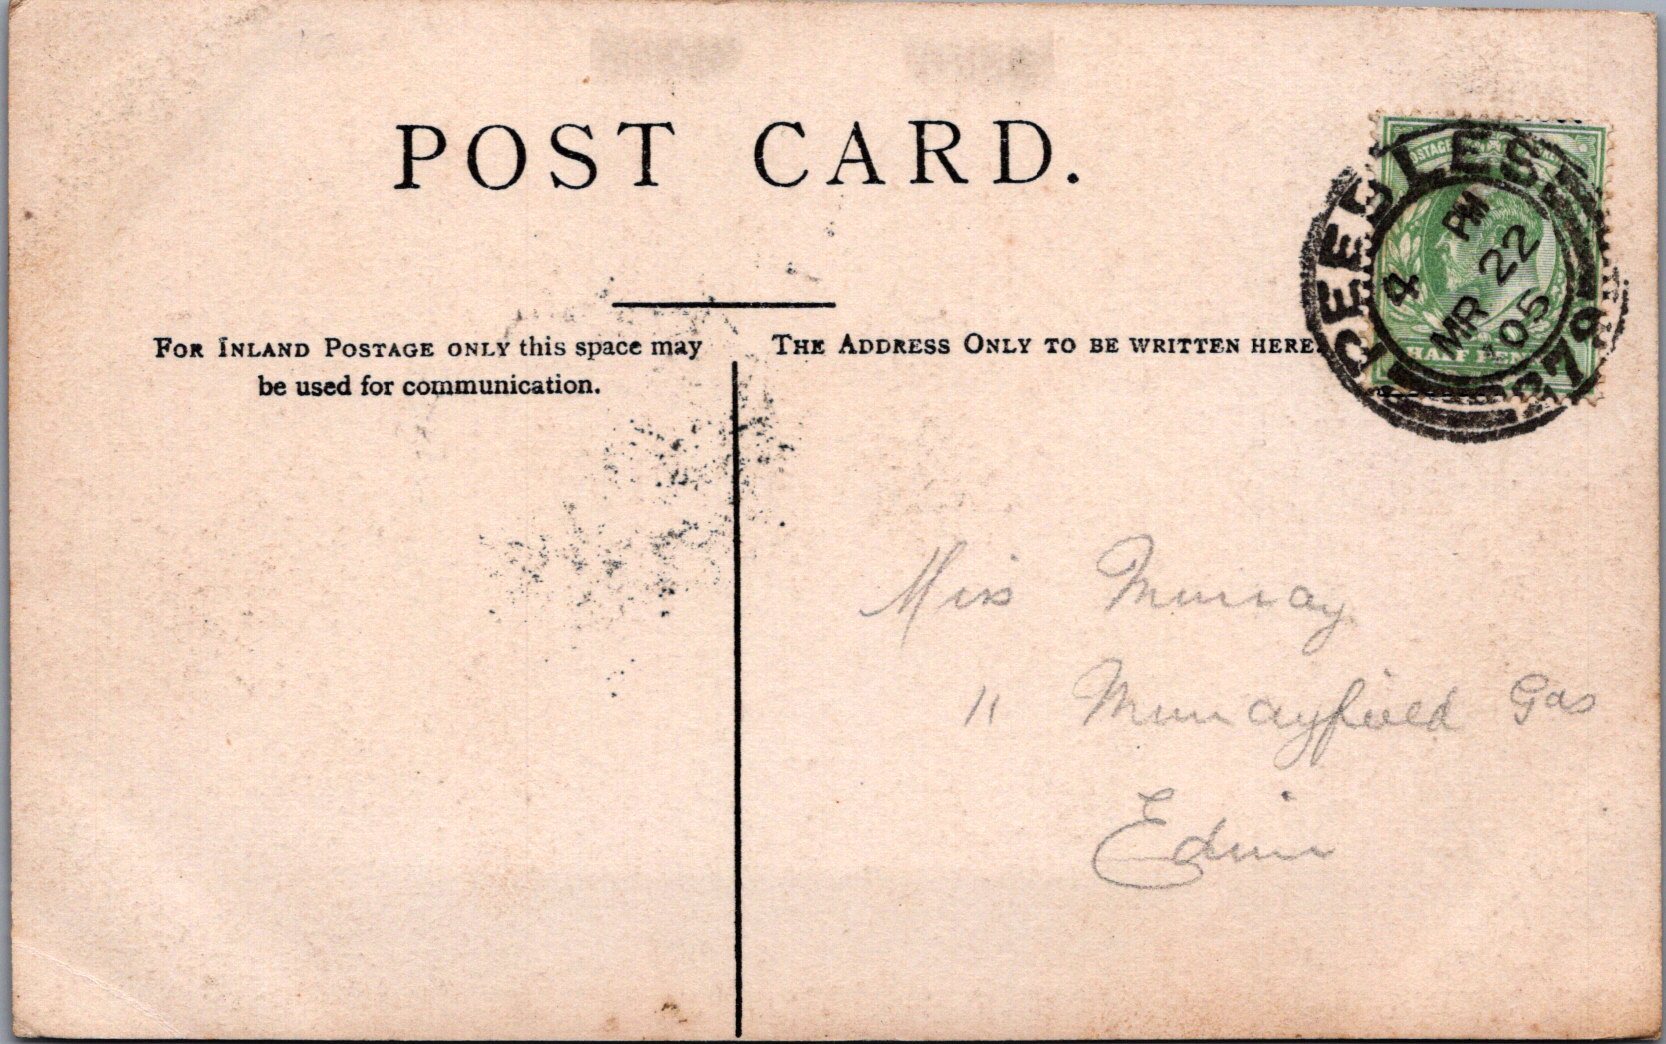 POST CARD.
FOR INLAND POSTAGE ONLY this space may
be used for communication.
THE ADDRESS ONLY TO BE WRITTEN HERE.
PEEBLES
4 PM
MR 22
05
273
HALF PEN
Miss Murray
11 Murrayfield Gds
Edin